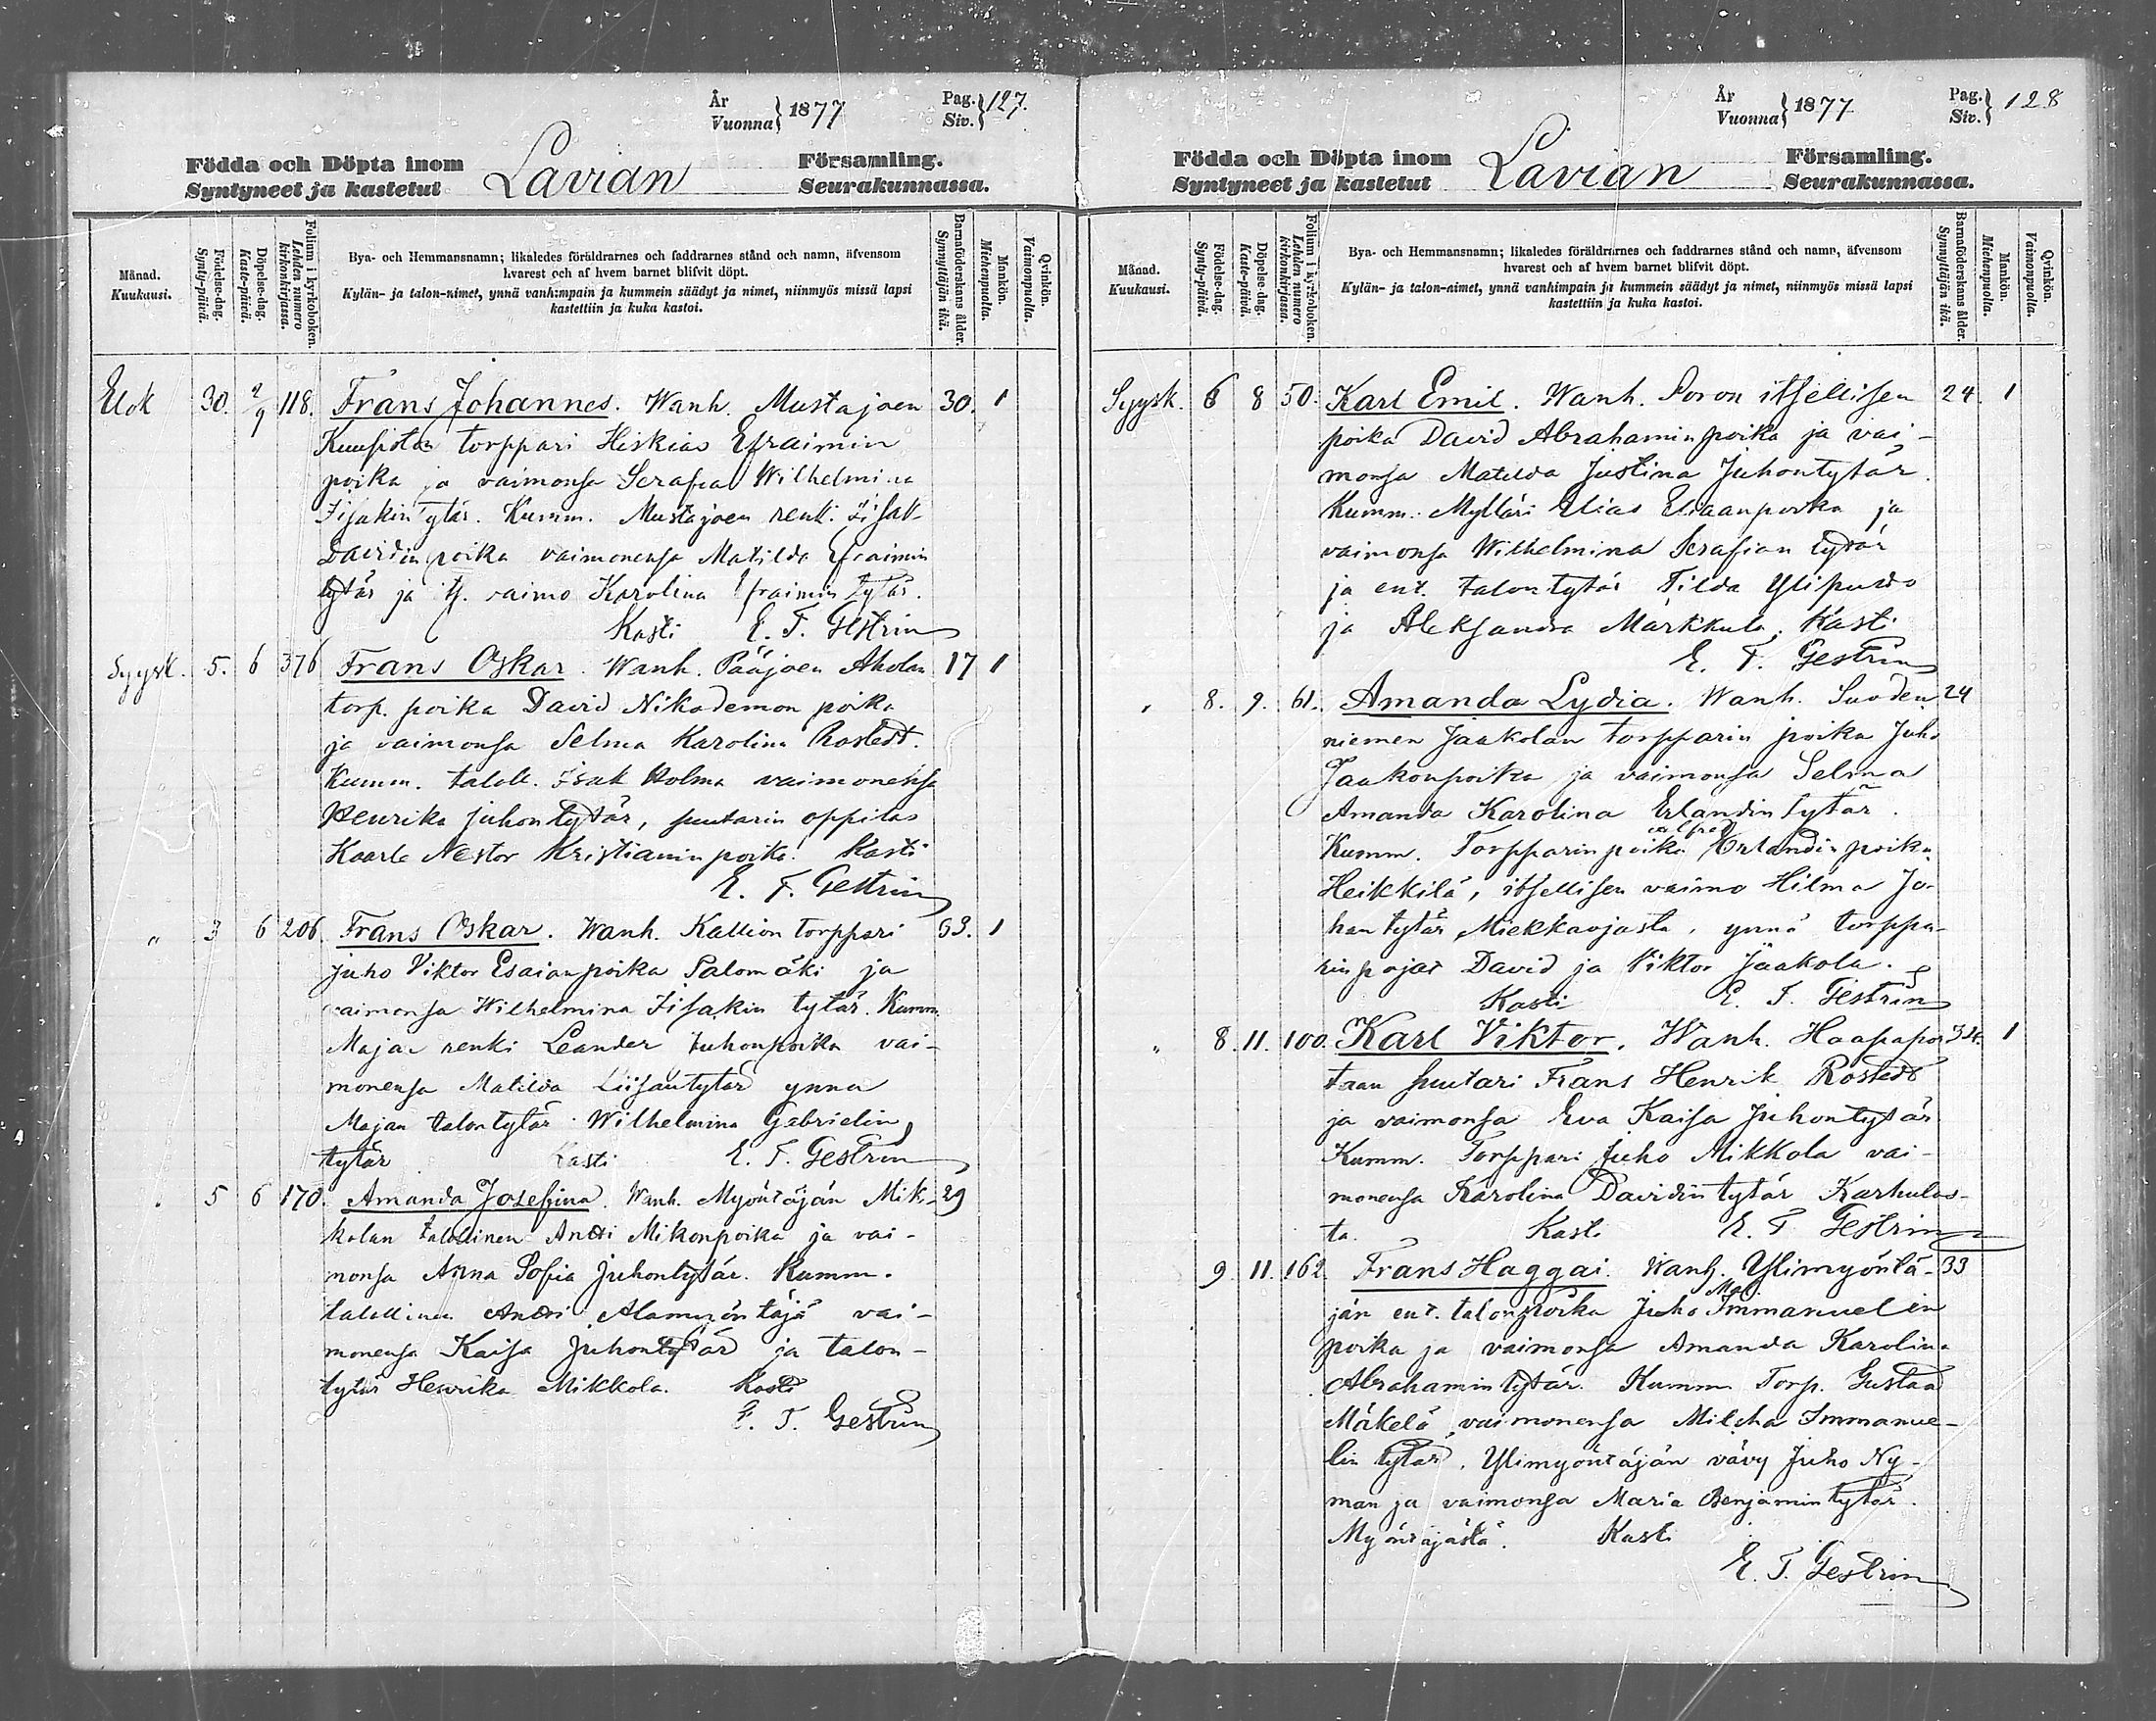 År
Vuonna } 1877
Pag.
Siv. } 127.
Födda och Döpta inom
Syntyneet ja kastetut
Lavian
Församling.
Seurakunnassa.
Månad.
Kuukausi.
Födelse-dag.
Synty-päivä.
Döpelse-dag.
Kaste-päivä.
Folium i kyrkoboken.
Lehden numero
kirkonkirjassa.
Bya- och Hemmansnamn; likaledes föräldrarnes och faddrarnes stånd och namn, äfvensom
hvarest och af hvem barnet blifvit döpt.
Kylän- ja talon-nimet, ynnä vanhimpain ja kummein säädyt ja nimet, niinmyös missä lapsi
kastettiin ja kuka kastoi.
Barnaföderskans ålder.
Synnyttäjän ikä.
Mankön.
Miehenpuolia.
Qvinkön.
Vaimonpuolia.
Elok 30. 2/9 118. Frans Johannes. Wanh. Mustajoen 30. 1
torppari Hiskias Efraimin
poika ja vaimonsa Serafia Wilhelmina
Iisakintytär. Kumm. Mustajoen renki Iisak
Davidinpoika vaimonensa Matilda Efraimin
tytär ja vaimo Karolina Efraimin tytär.
Kasti E. F. Gestrin
Syysk. 5. 6 376 Frans Oskar. Wanh. Pääjoen Aholan 17 1
torp. poika David Nikodemon poika
ja vaimonsa Selma Karolina Rostedt.
Kumm. taloll. Isak Holma vaimonensa
Henrika Juhontytär, suutarin oppilas
Kaarle Nestor Kristianinpoika. Kasti
E. F. Gestrin
" 3 6 206. Frans Oskar. Wanh. Kallion torppari 33. 1
Juho Viktor Esaianpoika Salomäki ja
vaimonsa Wilhelmina Iisakin tytär. Kumm.
Majan renki Leander Juhonpoika vai-
monensa Matilda Liisantytär ynnä
Majan talontytär Wilhelmina Gabrielin
tytär Kasti E. F. Gestrin
" 5 6 170. Amanda Josefina. Wanh. Myöntäjän Mik- 29
kolan talollinen Antti Mikonpoika ja vai-
monsa Anna Sofia Juhontytär. Kumm.
talollinen Antti Alamyöntäjä vai-
monensa Kaisa Juhontytär ja talon-
tytär Henrika Mikkola. Kasti
E. F. Gestrin
År
Vuonna } 1877
Pag.
Siv. } 128
Födda och Döpta inom
Syntyneet ja kastetut
Lavian
Församling.
Seurakunnassa.
Månad.
Kuukausi.
Födelse-dag.
Synty-päivä.
Döpelse-dag.
Kaste-päivä.
Folium i kyrkoboken.
Lehden numero
kirkonkirjassa.
Bya- och Hemmansnamn; likaledes föräldrarnes och faddrarnes stånd och namn, äfvensom
hvarest och af hvem barnet blifvit döpt.
Kylän- ja talon-nimet, ynnä vanhimpain ja kummein säädyt ja nimet, niinmyös missä lapsi
kastettiin ja kuka kastoi.
Barnaföderskans ålder.
Synnyttäjän ikä.
Mankön.
Miehenpuolia.
Qvinkön.
Vaimonpuolia.
Syysk. 6 8 50. Karl Emil. Wanh. Poron itsellisen 24 1
poika David Abrahaminpoika ja vai-
monsa Matilda Justina Juhontytär.
Kumm. Mylläri Elias Eliaanpoika ja
vaimonsa Wilhelmina Serafian tytär
ja ent. talontytär Tilda Ylipurdo
ja Aleksandra Markkula. Kasti
E. F. Gestrin
" 8. 9. 61. Amanda Lydia. Wanh. Suoden 24
niemen Jaakolan torpparin poika Juho
Jaakonpoika ja vaimonsa Selma
Amanda Karolina Erlandin tytär.
Kumm. Torpparin poika Alfred Erlandinpoika
Heikkilä, itsellisen vaimo Hilma Jo-
hantytär Miekkaojasta, ynnä torppa-
rinpojat David ja Viktor Jaakola.
Kasti E. F. Gestrin
" 8. 11. 100. Karl Viktor. Wanh. Haapapor 34. 1
taan suutari Frans Henrik Rostedt
ja vaimonsa Eva Kaisa Juhontytär.
Kumm. Torppari Juho Mikkola vai-
monensa Karolina Davidintytär Karhulas-
ta. Kasti E. F. Gestrin
9. 11. 162. Frans Haggai. Wanh. Ylimyöntä- 33
jän ent. talonpoika Juho Immanuelin
poika ja vaimonsa Amanda Karolina
Abrahamintytär. Kumm. Torp. Gustaa
Mäkelä, vaimonensa Milcha Immanue-
lin tytär. Ylimyöntäjän vävy Juho Ny-
man ja vaimonsa Maria Benjamintytär
Myöntäjästä. Kasti
E. F. Gestrin